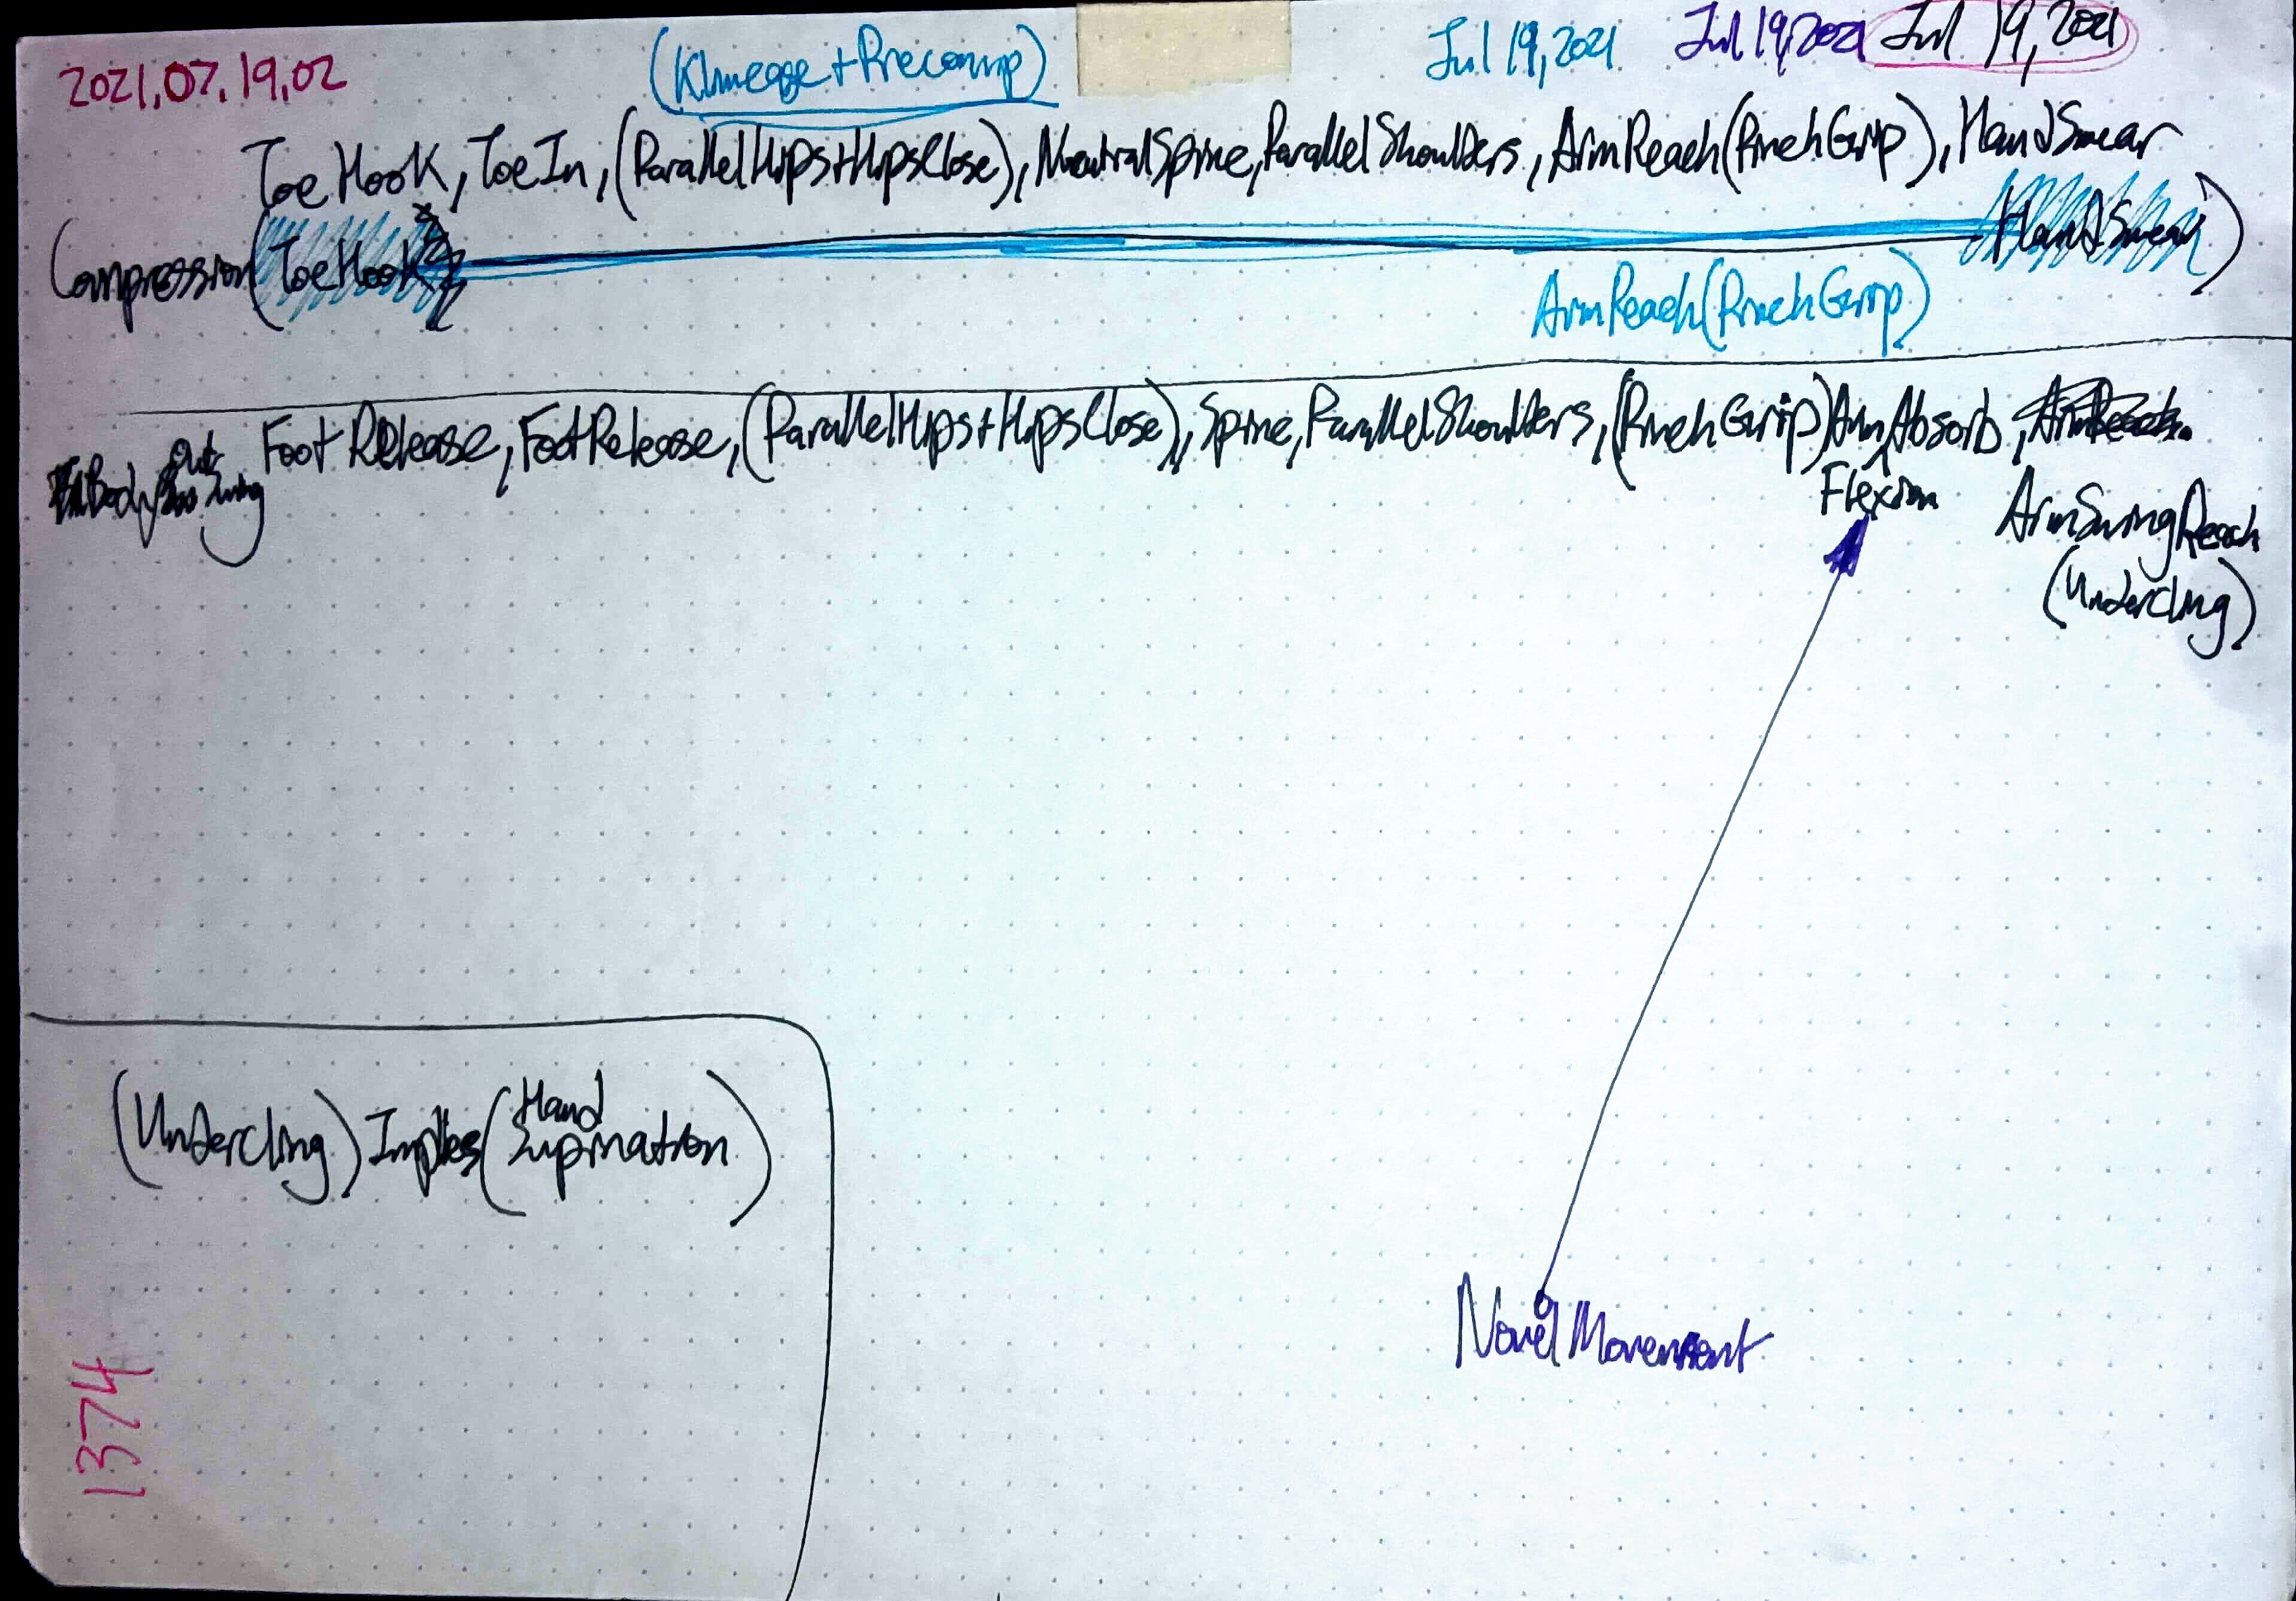 2021.07.19.02
Jul 19, 2021 Jul 19, 2021 Jul 19, 2021
ToeHook, ToeIn, (ParallelHips+HipsClose), NeutralSpine, ParallelShoulders, ArmReach(PinchGrip), HandSmear
Compression(ToeHook HandSmear)
ArmReach(PinchGrip)
FootRelease, FootRelease, (ParallelHips+HipsClose), Spine, ParallelShoulders, (PinchGrip)ArmAbsorb,
Out
Body Swing
Flexion
ArmSwingReach
(Undercling)
(Undercling) Implies (Hand Supination)
Novel Movement
1374